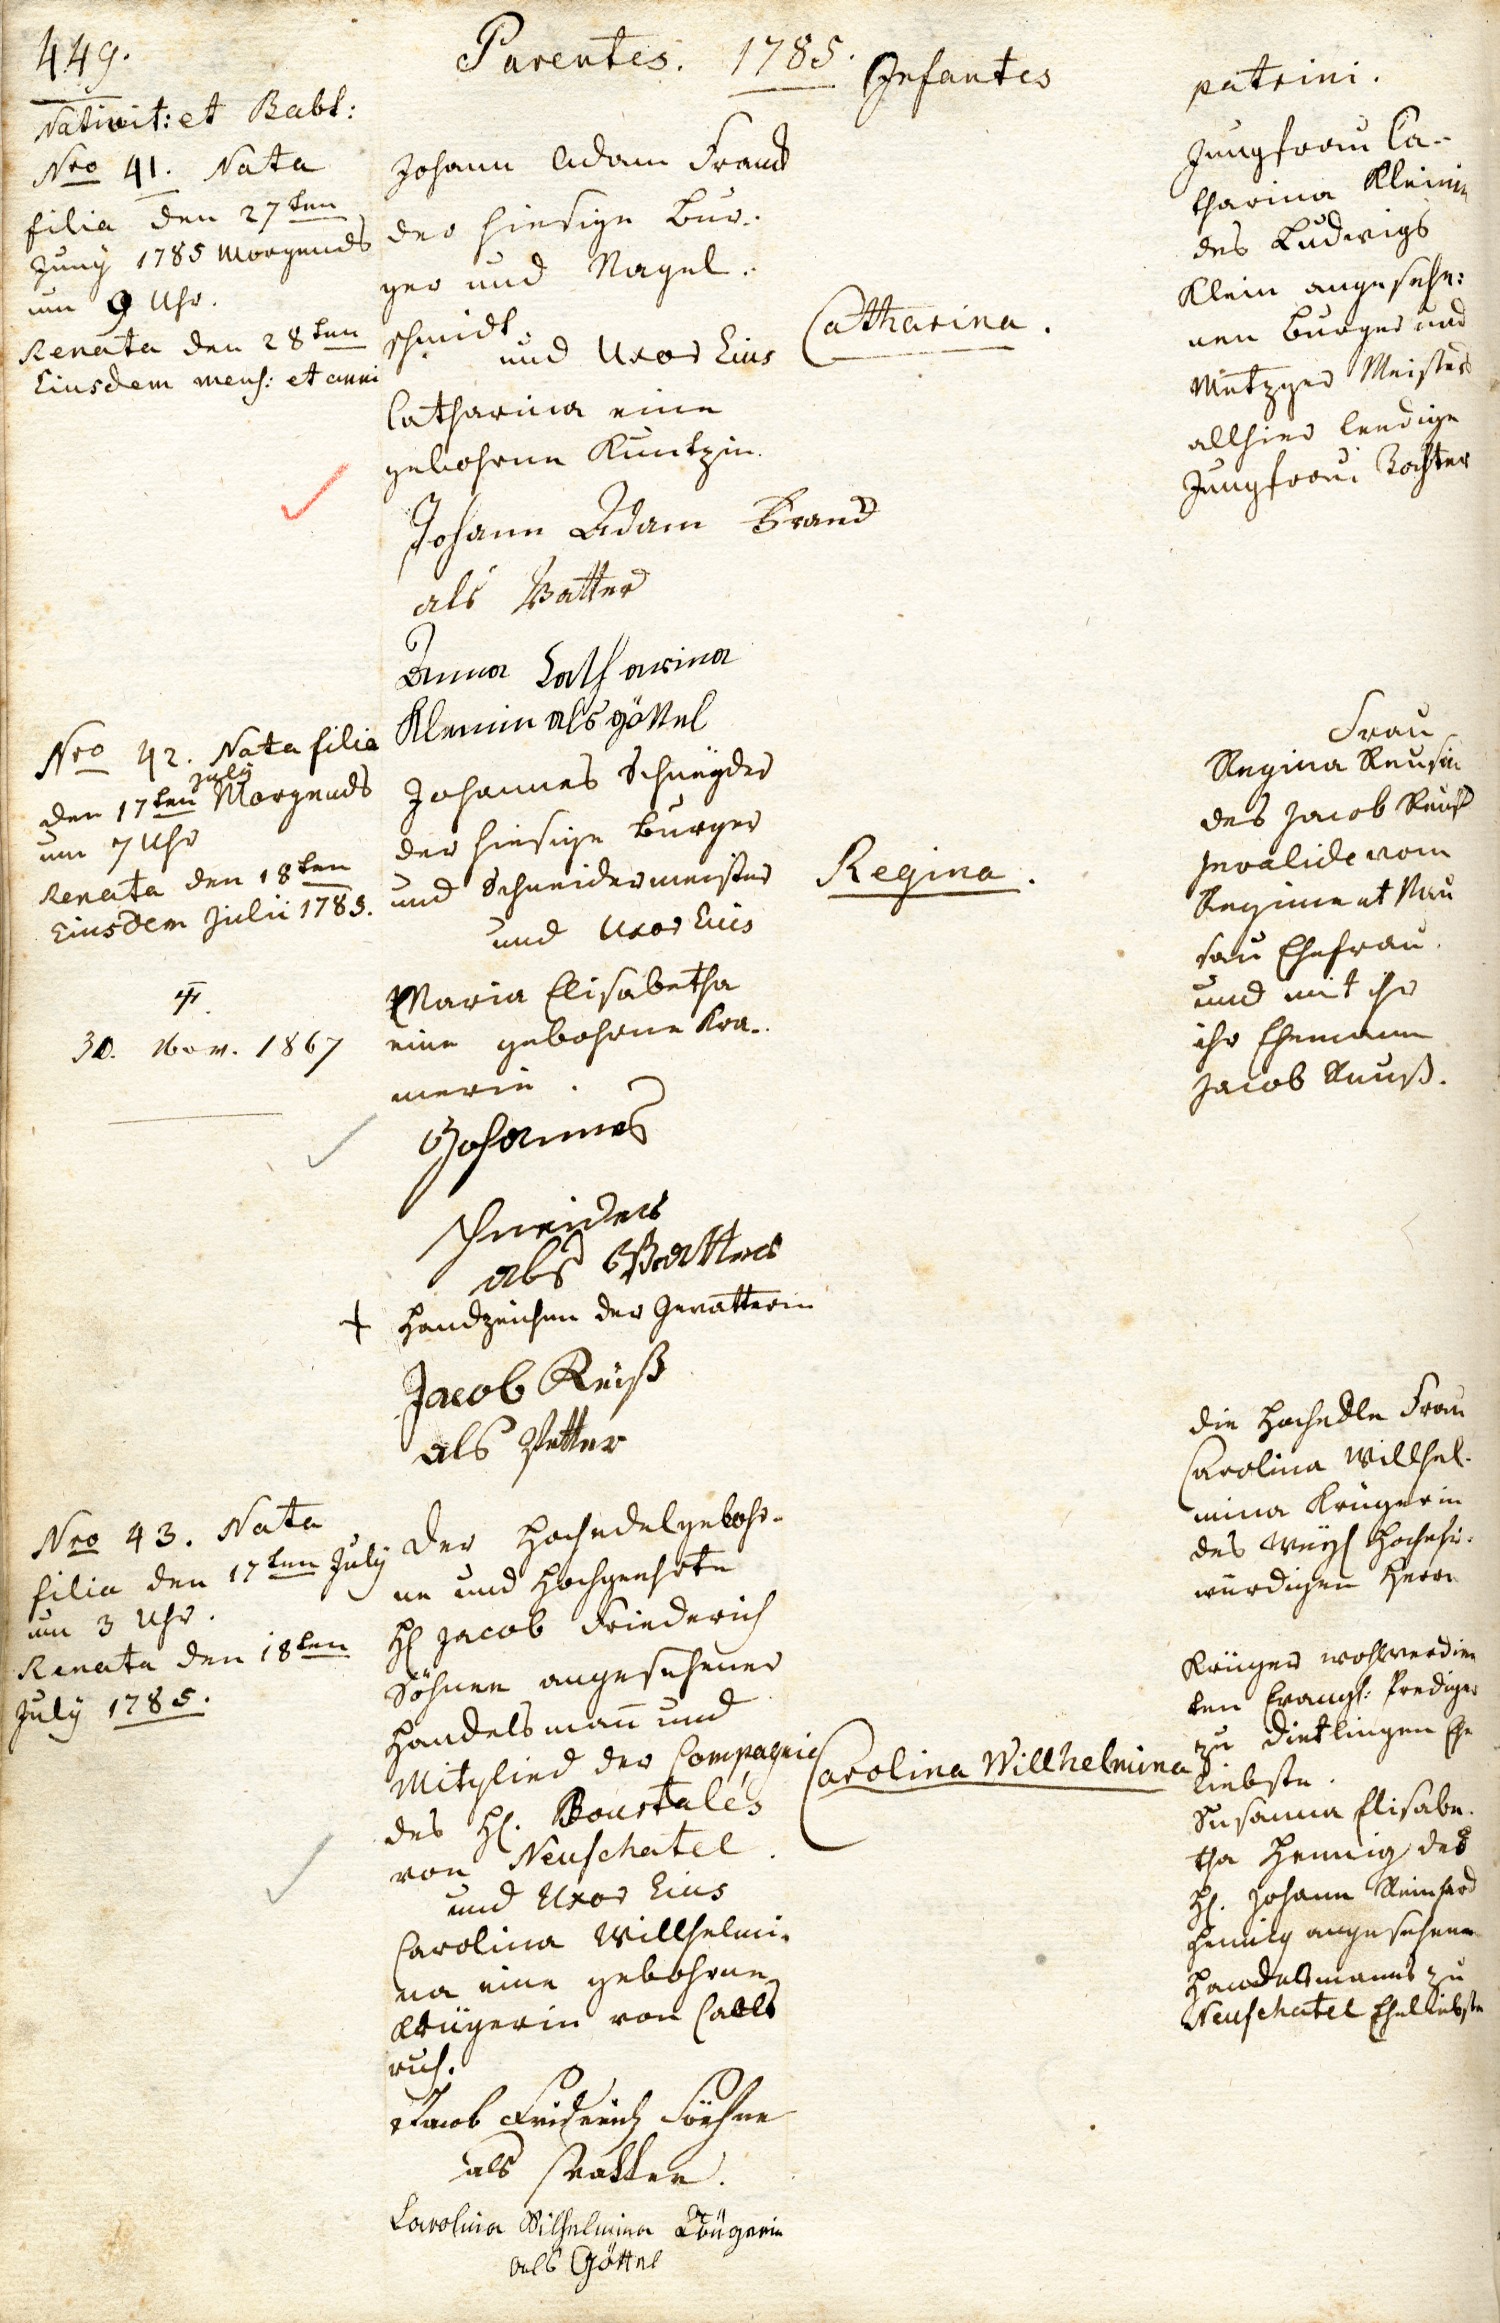 449.
Parentes. 1785. Infantes patrini.
Nativit: et Babt:
Nro 41. Nata
filia den 27ten
Juny 1785 Morgends
um 9 Uhr.
Renata den 28ten
Eiusdem mens: et anni
Johann Adam Brand
der hiesige Bur-
ger und Nagel-
schmidt.
und Uxor Eius
Catharina eine
gebohrne Kuntzin.
Catharina.
Jungfrau Ca-
tharina Kleinin
des Ludwigs
Klein angesehe:
nen Burger und
Metzger Meisters
allhier leedige
Jungfrau Tochter
Johann Adam Brand
als Vatter
Anna Catharina
Kleinin als göttel
Nro 42. Nata filia
den 17ten July Morgends
um 7 Uhr
Renata den 18ten
Eiusdem Julii 1785.
30. Nov. 1867
Johannes Schneyder
der hiesige Burger
und Schneidermeister
und Uxor Eius
Maria Elisabetha
eine gebohrne Kra-
merin.
Regina.
Frau
Regina Reusin
des Jacob Reuß
Invalide vom
Regiment Nas
sau Ehefrau.
und mit ihr
ihr Ehemann
Jacob Reuß.
Johannes
schneider
als Vatter
+ Handzeichen der Gevatterin
Jacob Reuß
als Petter
Nro 43. Nata
filia den 17ten July
um 3 Uhr.
Renata den 18ten
July 1785.
Der Hochedelgebohr-
ne und Hochgeehrte
H Jacob Friederich
Söhnee angesehener
Handelsmañ und
Mitglied der Compagnie
des H. Bourtales
von Neufchatel.
und Uxor Eius
Carolina Willhelmi-
na eine gebohrne
Krügerin von Carls
ruh.
Carolina Willhelmina
die Hochedle Frau
Carolina Willhel-
mina Krügerin
des Weyl Hochehr-
würdigen Herrn
Krüger wohlverdien
ten Evangl: Prediger
zu Dietlingen Ehe
liebste.
Susanna Elisabe-
tha Hennig des
H. Johann Reinhard
Hennig angesehenen
Handelsmanns zu
Neufchatel Eheliebste
Jacob Friderich Söehnee
als Vatter.
Carolina Wilhelmina Krügerin
als Göttel